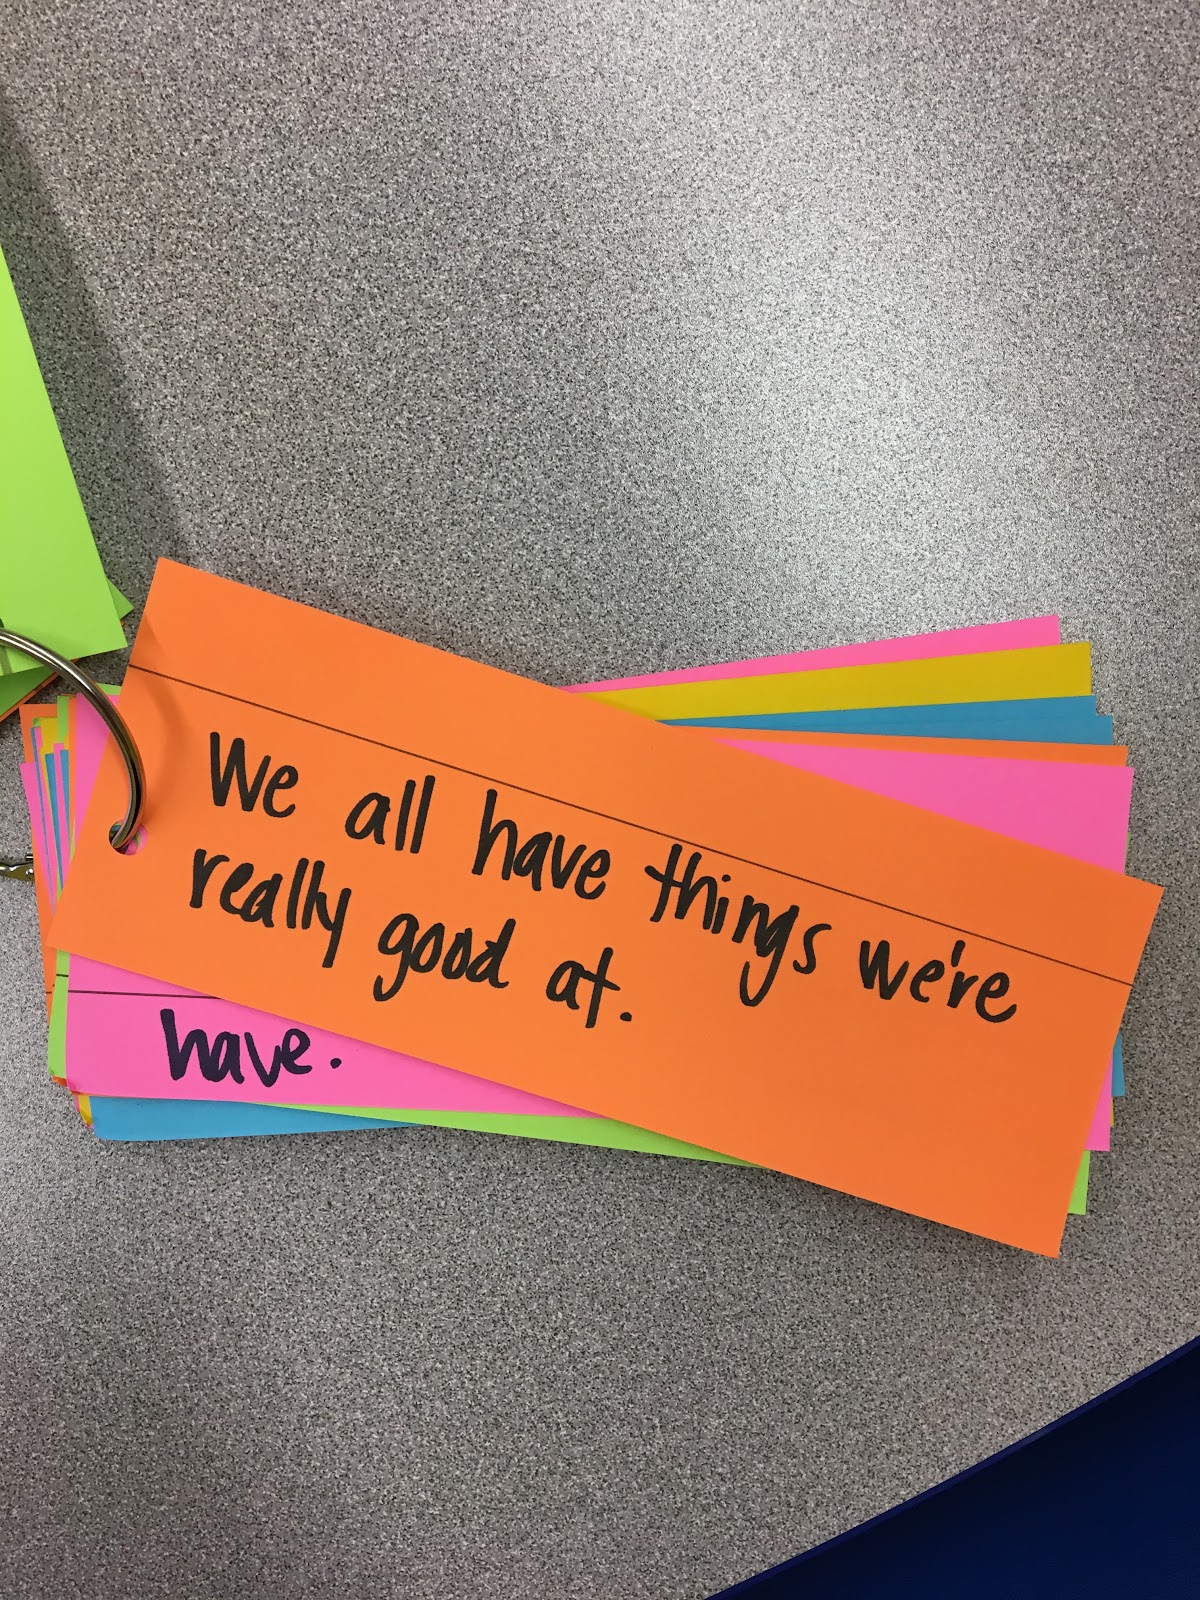 We all have things we're
really good at.
have.